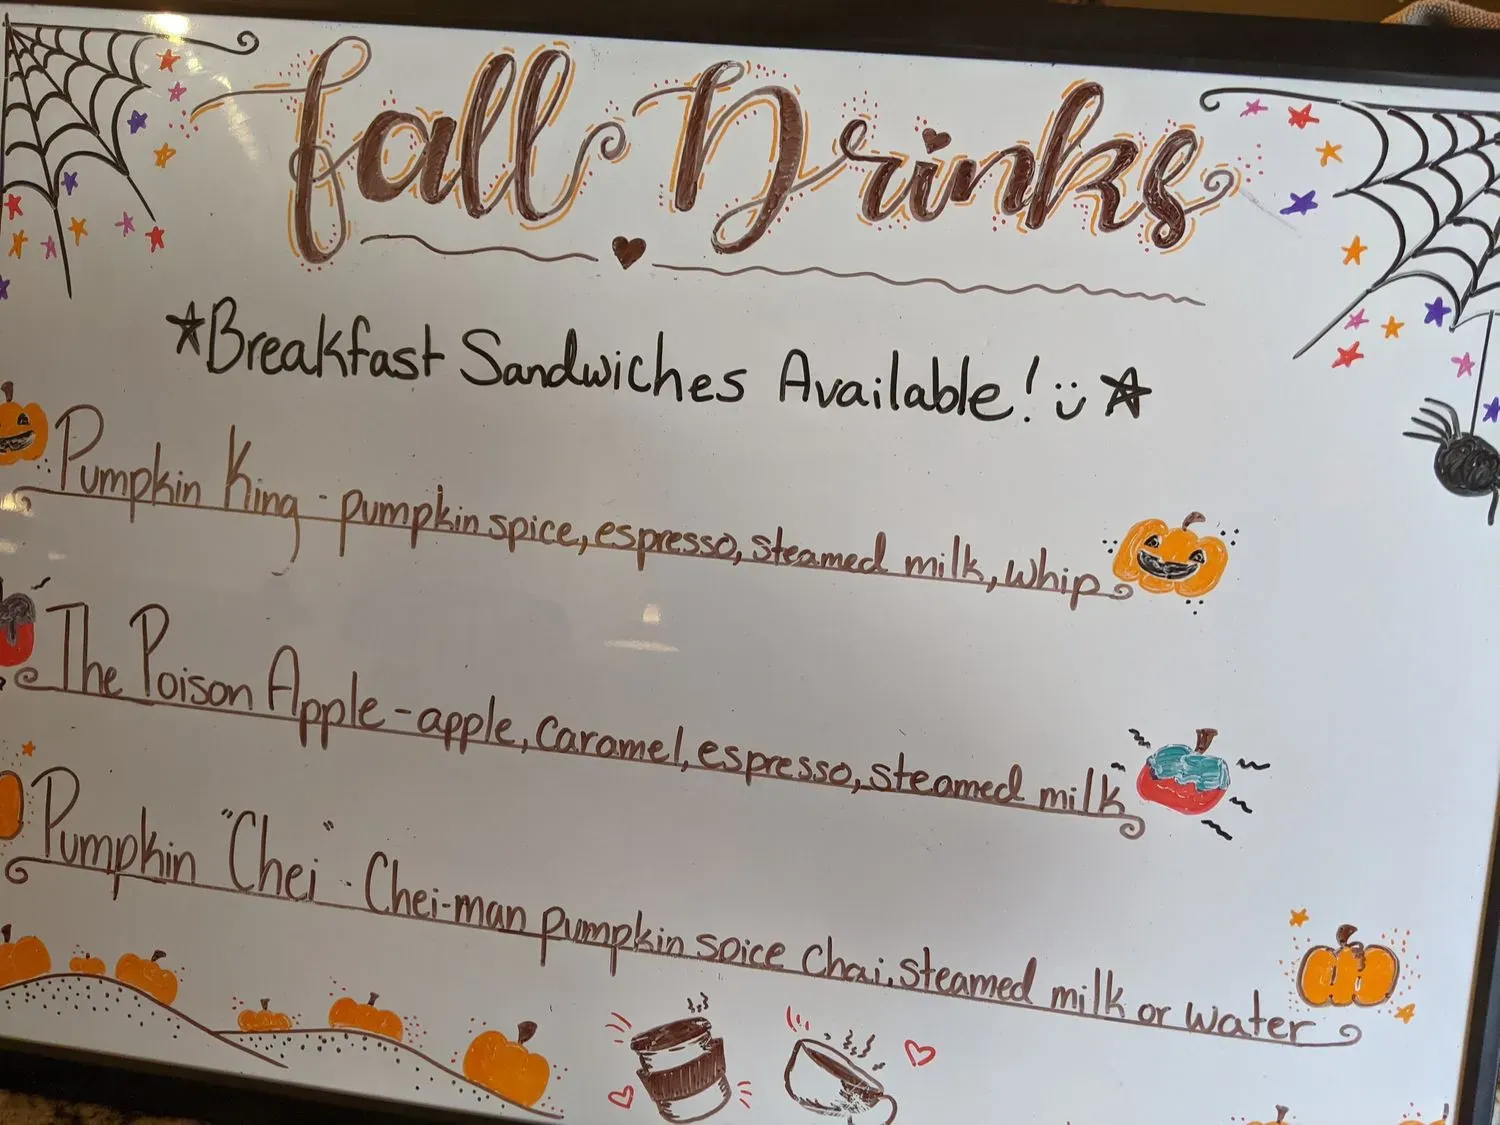 Fall Drinks
Breakfast Sandwiches Available! :)
Pumpkin King - pumpkin spice, espresso, steamed milk, whip
The Poison Apple - apple, caramel, espresso, steamed milk
Pumpkin "Chei" - Chei-man pumpkin spice chai, steamed milk or water